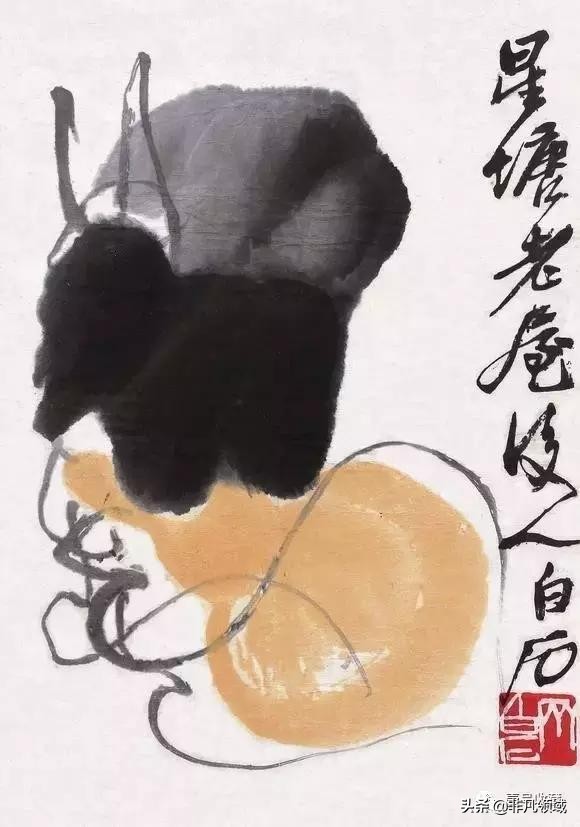 星塘老屋後人白石
头条@非凡领域